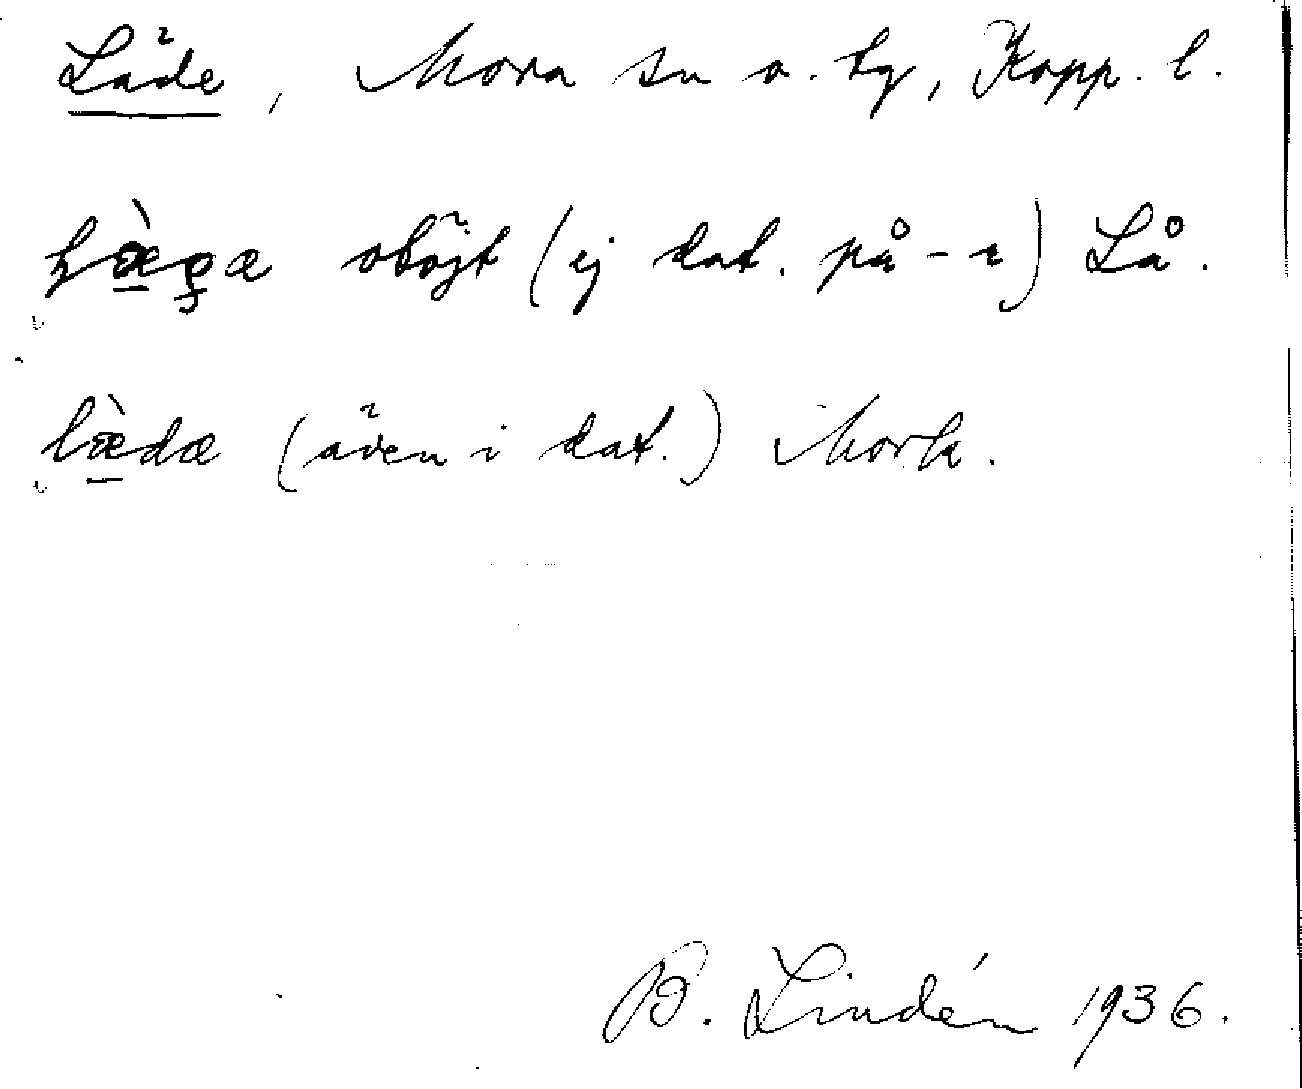 Läde, Mora sn o. tg, Kopp. l.
oböjt (ej dat. på -ı) Lå.
læ̀dæ (även i dat.) Mork.
B. Lindén 1936.